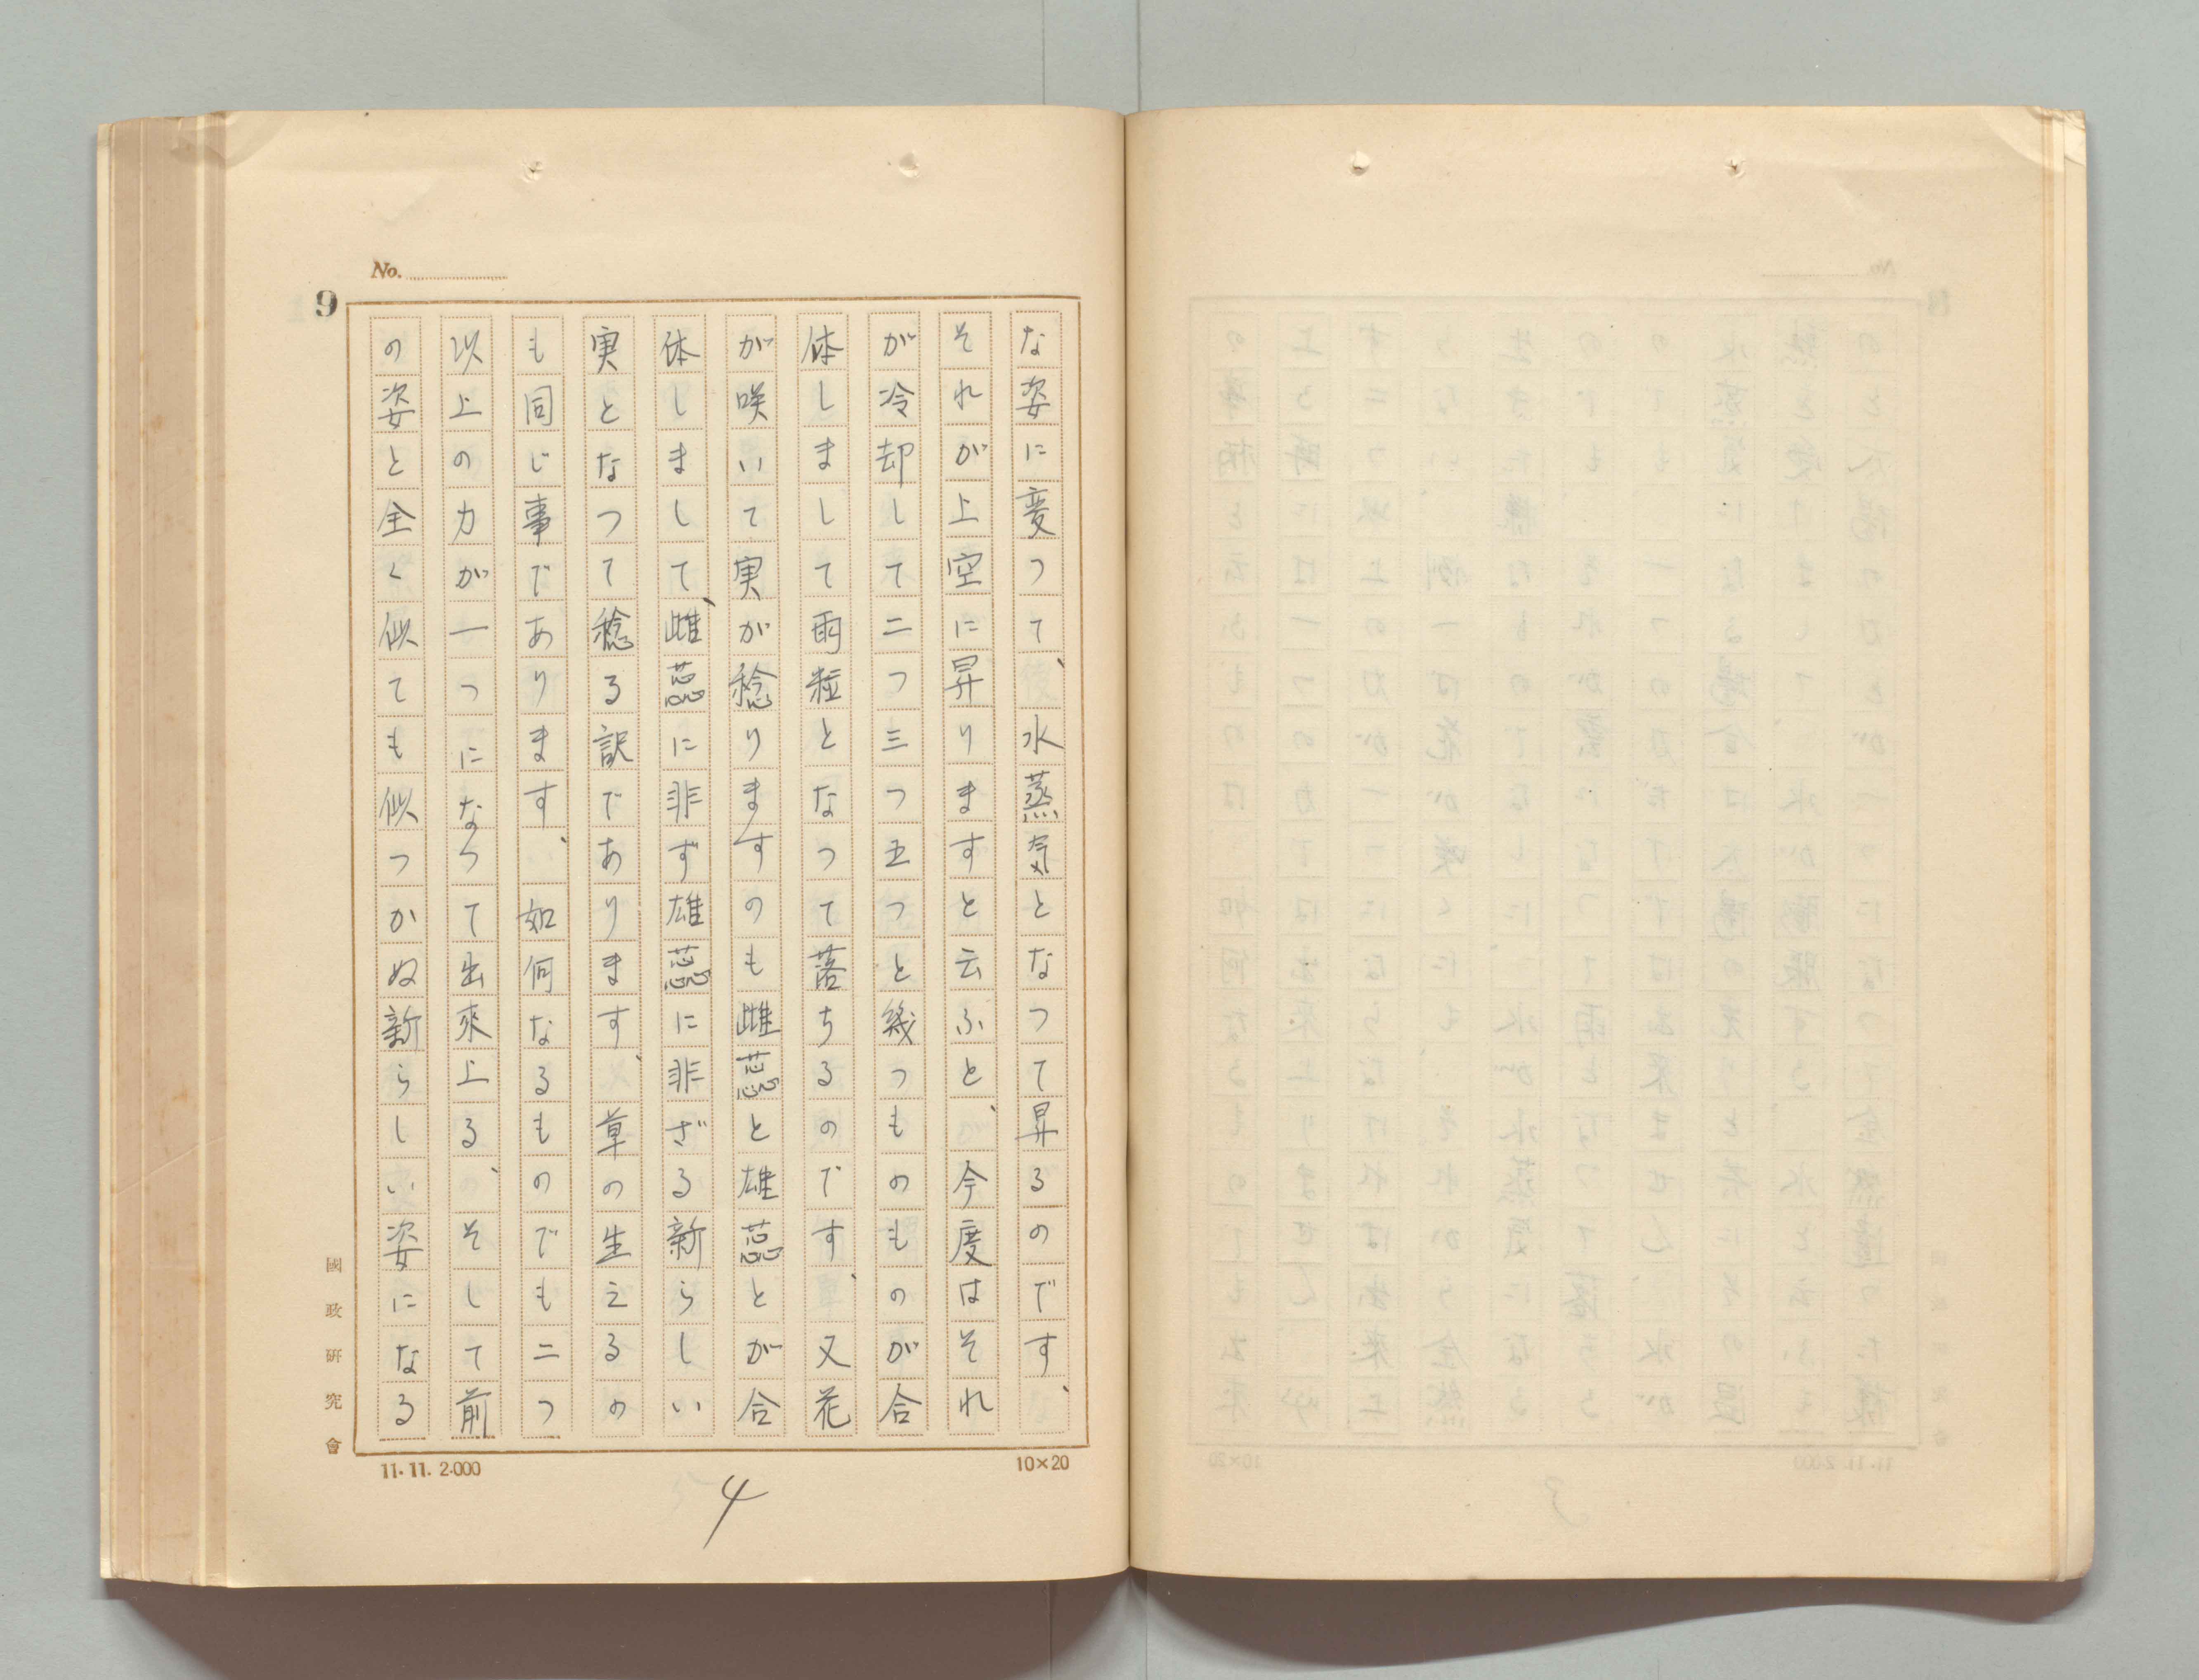 No.
9
な姿に変つて、水蒸気となつて昇るのです、
それが上空に昇りますと云ふと、今度はそれ
が冷却して二つ三つ五つと幾つものものが合
体しまして雨粒となつて落ちるのです、又花
が咲いて実が稔りますのも雌蕊と雄蕊とが合
体しまして、雌蕊に非ず雄蕊に非ざる新らしい
実となつて稔る訳であります、草の生えるの
も同じ事であります、如何なるものでも二つ
以上の力が一つになつて出來上る、そして前
の姿と全く似ても似つかぬ新らしい姿になる
國政研究會
11.11.2.000
10×20
4